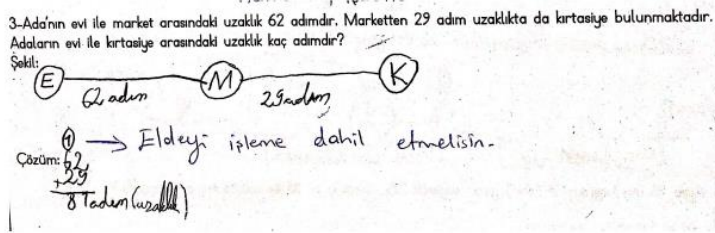 3-Ada'nın evi ile market arasındaki uzaklık 62 adımdır. Marketten 29 adım uzaklıkta da kırtasiye bulunmaktadır.
Adaların evi ile kırtasiye arasındaki uzaklık kaç adımdır?
Şekil:
E M K
62 adım 29 adım
1 → Eldeyi işleme dahil etmelisin.
Çözüm: 62
+29
81 adım (uzaklık)